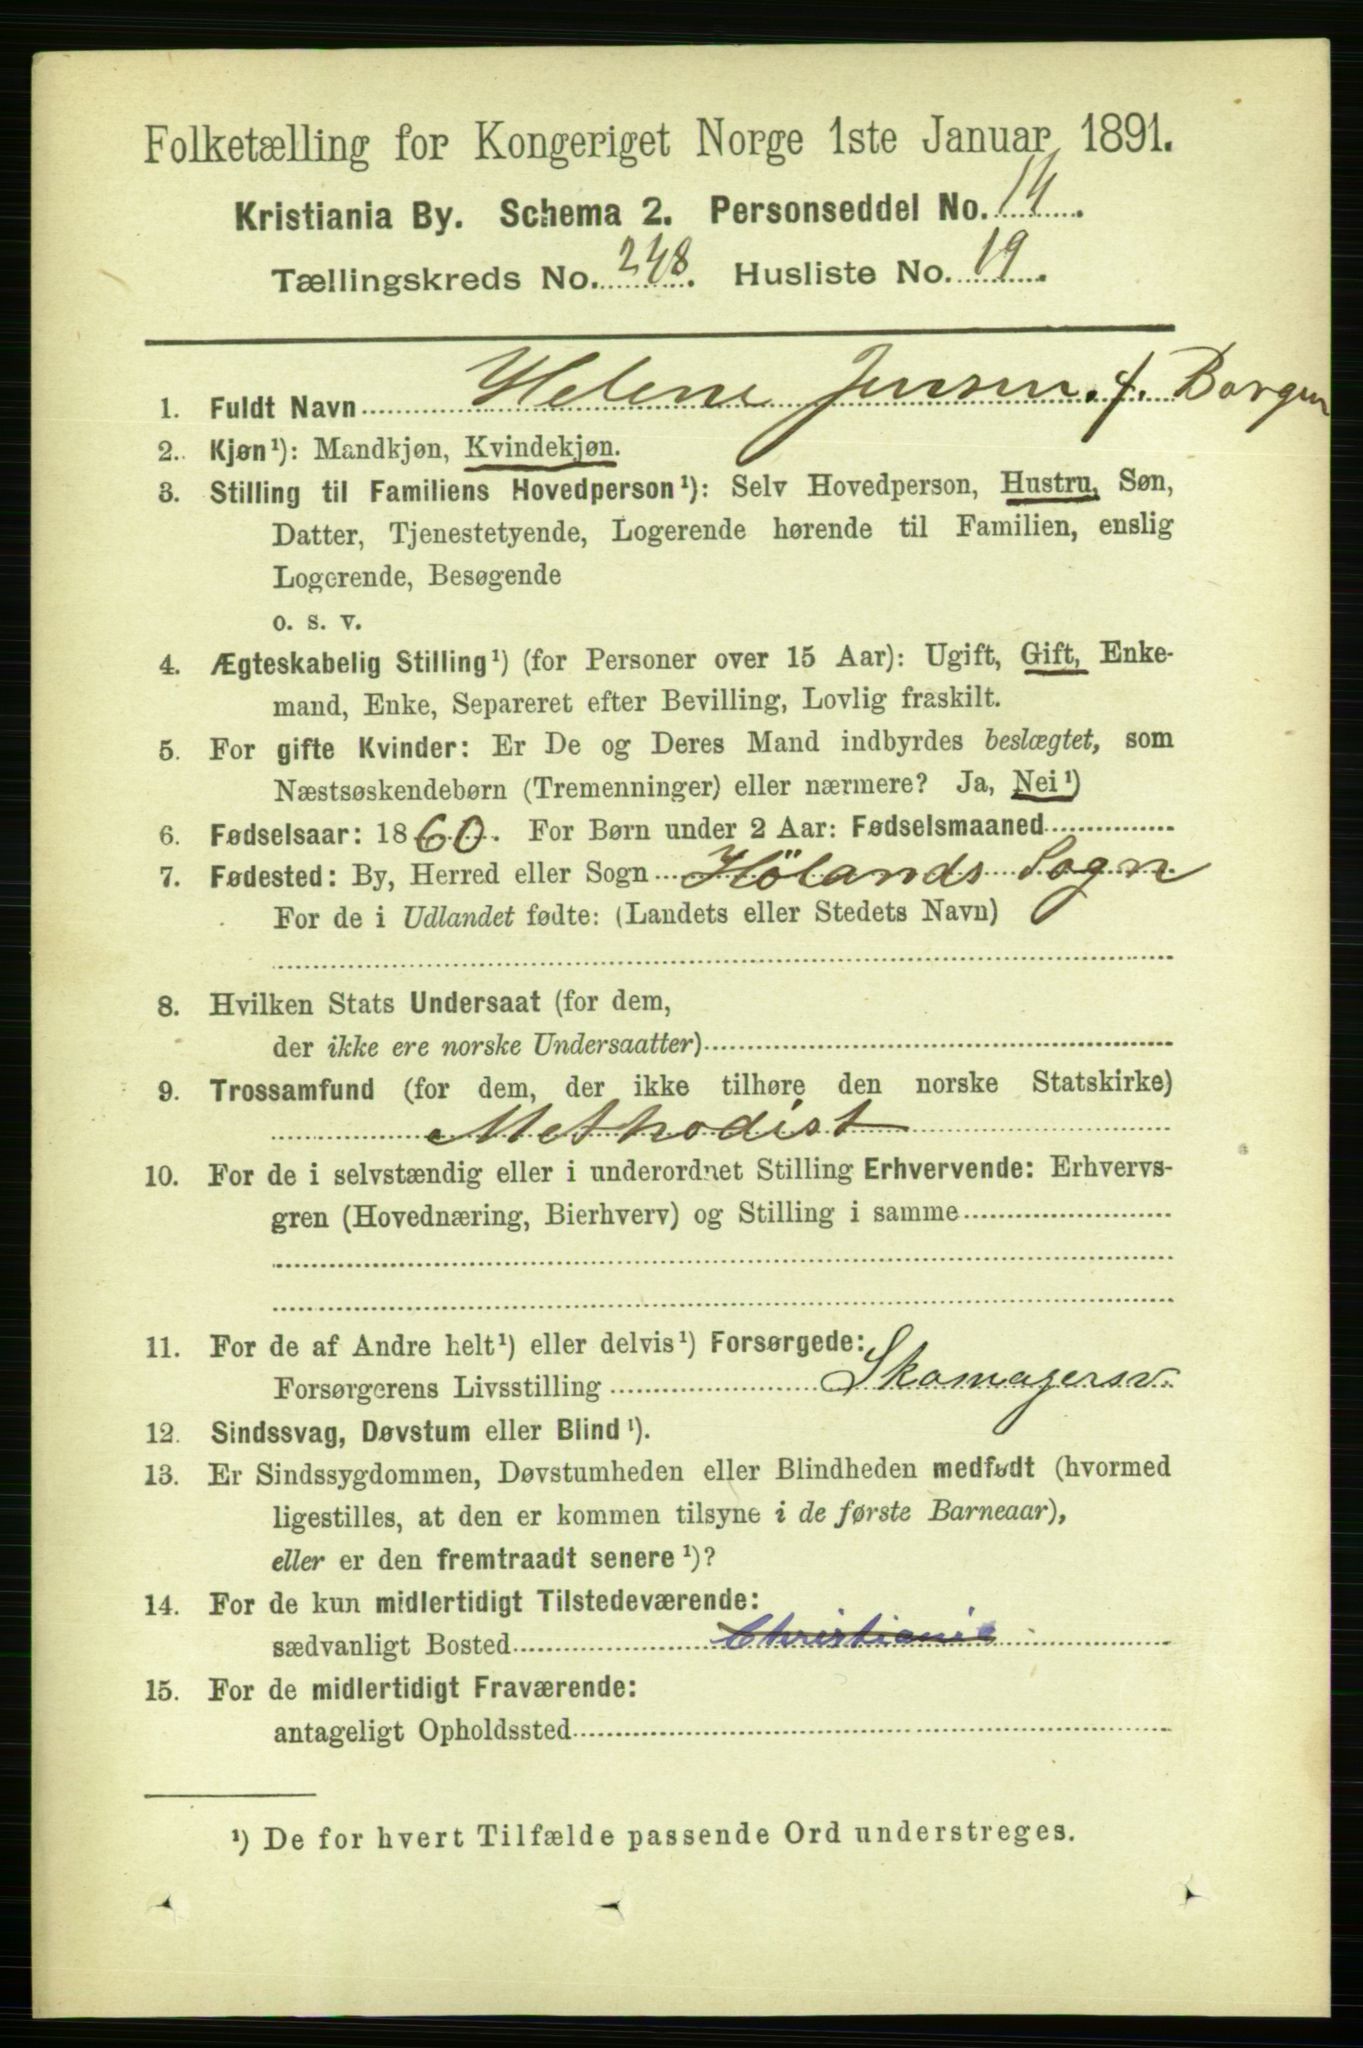 Folketælling for Kongeriget Norge 1ste Januar 1891.
Kristiania By. Schema 2. Personseddel No. 14.
Tællingskreds No. 248. Husliste No. 19.
1. Fuldt Navn Helene Jensen. f. Borgen
2. Kjøn¹): Mandkjøn, Kvindekjøn.
3. Stilling til Familiens Hovedperson¹): Selv Hovedperson, Hustru, Søn,
Datter, Tjenestetyende, Logerende hørende til Familien, enslig
Logerende, Besøgende
o. s. v.
4. Ægteskabelig Stilling¹) (for Personer over 15 Aar): Ugift, Gift, Enke-
mand, Enke, Separeret efter Bevilling, Lovlig fraskilt.
5. For gifte Kvinder: Er De og Deres Mand indbyrdes beslægtet, som
Næstsøskendebørn (Tremenninger) eller nærmere? Ja, Nei¹)
6. Fødselsaar: 1860. For Børn under 2 Aar: Fødselsmaaned
7. Fødested: By, Herred eller Sogn Hölands Sogn
For de i Udlandet fødte: (Landets eller Stedets Navn)
8. Hvilken Stats Undersaat (for dem,
der ikke ere norske Undersaatter)
9. Trossamfund (for dem, der ikke tilhøre den norske Statskirke)
Methodist
10. For de i selvstændig eller i underordnet Stilling Erhvervende: Erhvervs-
gren (Hovednæring, Bierhverv) og Stilling i samme
11. For de af Andre helt¹) eller delvis¹) Forsørgede:
Forsørgerens Livsstilling Skomagersv.
12. Sindssvag, Døvstum eller Blind¹).
13. Er Sindssygdommen, Døvstumheden eller Blindheden medfødt (hvormed
ligestilles, at den er kommen tilsyne i de første Barneaar),
eller er den fremtraadt senere¹)?
14. For de kun midlertidigt Tilstedeværende:
sædvanligt Bosted Christiania
15. For de midlertidigt Fraværende:
antageligt Opholdssted
¹) De for hvert Tilfælde passende Ord understreges.